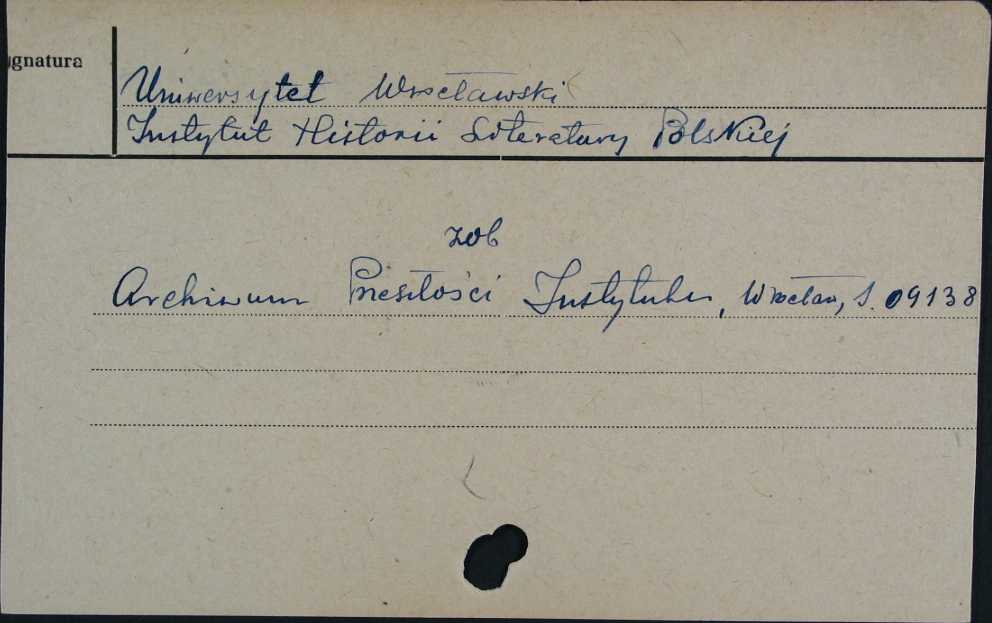 ignatura
Uniwersytet Wrocławski
Instytut Historii Literatury Polskiej
zob
Archiwum Przeszłości Instytutu, Wrocław, S. 09138